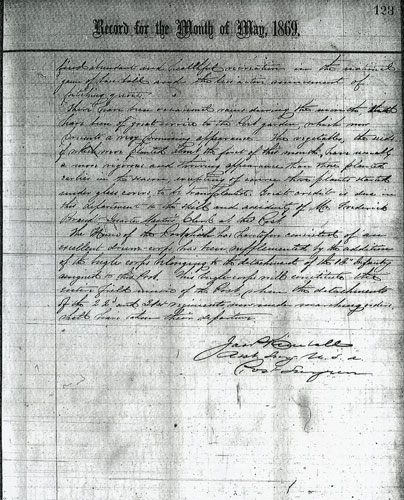 123
Record for the Month of May, 1869.
find abundant and healthful recreation in the
game of base ball and the less active amusement of
pitching quoits.
There have been occasional rains during the month that
have been of great service to the Post garden, which now
presents a very promising appearance. The vegetables, the seeds
of which were planted about the first of this month, have usually
a more vigorous and thriving appearance than those planted
earlier in the season, even those plants started
under glass covers to be transplanted. Great credit is due in
this department to the skill and assiduity of Mr. Frederick
Quarter Master Clerk at this Post.
The Music of the Post, which has heretofore consisted of an
excellent drum corps has been supplemented by the addition
of the bugle corps belonging to the detachments of the 12th Infantry
assigned to this Post. This bugle corps will constitute the
entire field music of the Post, when the detachments
of the 22d and 21st regiments, now under marching orders,
shall have taken their departure.
Asst Surg. U.S.A
Post Surgeon